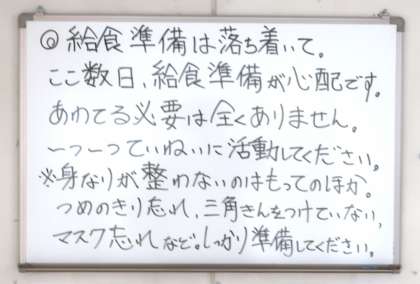 ◎給食準備は落ち着いて。
ここ数日、給食準備が心配です。
あわてる必要は全くありません。
一つ一つていねいに活動してください。
※身なりが整わないのはもってのほか。
つめのきり忘れ、三角きんをつけていない、
マスク忘れなど。しっかり準備してください。